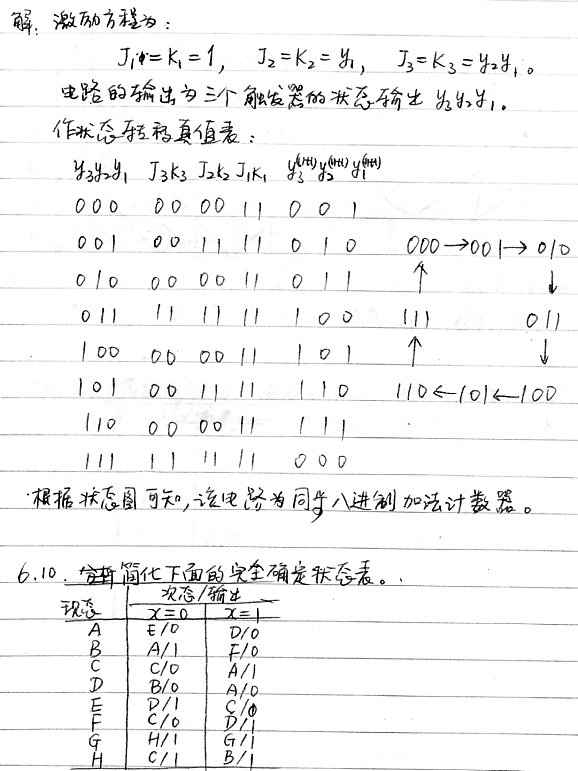 解: 激励方程为:
J₁=K₁=1, J₂=K₂=y₁, J₃=K₃=y₂y₁。
电路的输出为三个触发器的状态输出 y₃y₂y₁。
作状态转移真值表:
y₃y₂y₁ J₃K₃ J₂K₂ J₁K₁ y₃⁽ⁿ⁺¹⁾y₂⁽ⁿ⁺¹⁾y₁⁽ⁿ⁺¹⁾
000 00 00 11 0 0 1
001 00 11 11 0 1 0 000→001→010
010 00 00 11 0 1 1 ↑ ↓
011 11 11 11 1 0 0 111 011
100 00 00 11 1 0 1 ↑ ↓
101 00 11 11 1 1 0 110←101←100
110 00 00 11 1 1 1
111 11 11 11 0 0 0
根据状态图可知,该电路为同步八进制加法计数器。
6.10. 简化下面的完全确定状态表。
现态 次态/输出
x=0 x=1
A E/0 D/0
B A/1 F/0
C C/0 A/1
D B/0 A/0
E D/1 C/0
F C/0 D/1
G H/1 G/1
H C/1 B/1